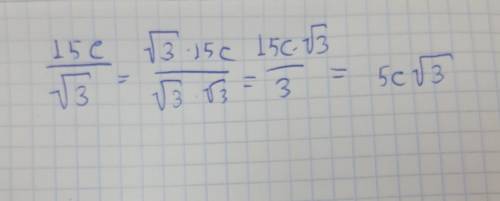 15c/√3 = √3 · 15c/√3 · √3 = 15c·√3/3 = 5c√3